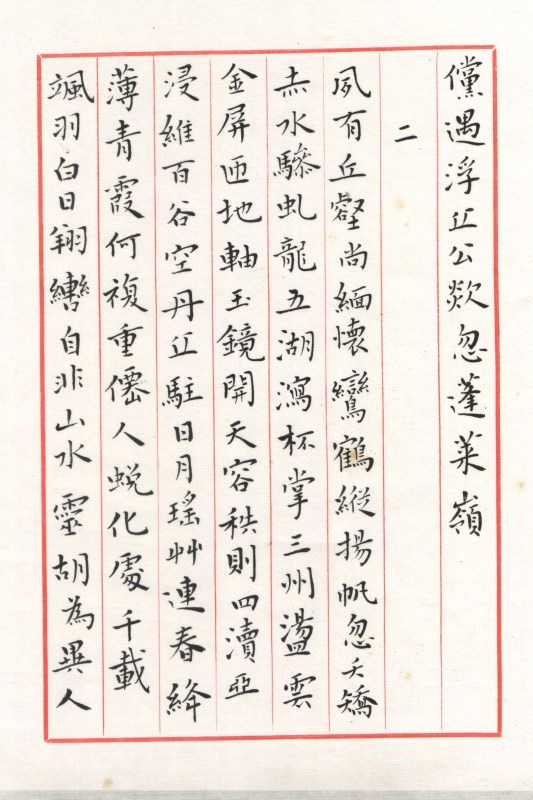 儻遇浮丘公欻忽蓬萊嶺
二
夙有丘壑尚緬懷鸞鶴縱揚帆忽夭矯
赤水驂虬龍五湖瀉杯掌三州盪雲
金屏匝地軸玉鏡開天容秩則四瀆亞
浸維百谷空丹丘駐日月瑤艸連春絳
薄青霞何複重僊人蛻化處千載
颯羽白日翔轡自非山水靈胡為異人